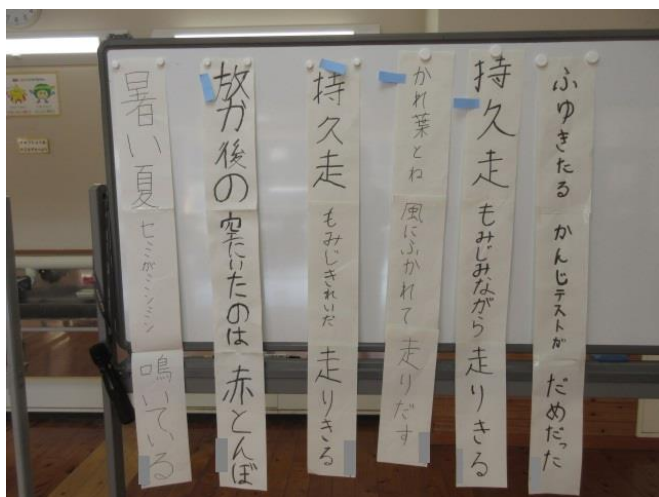 ふゆきたる かんじテストが だめだった
持久走 もみじみながら 走りきる
かれ葉とね 風にふかれて 走りだす
持久走 もみじきれいだ 走りきる
放か後の 空にいたのは 赤とんぼ
暑い夏 セミがミンミン 鳴いている